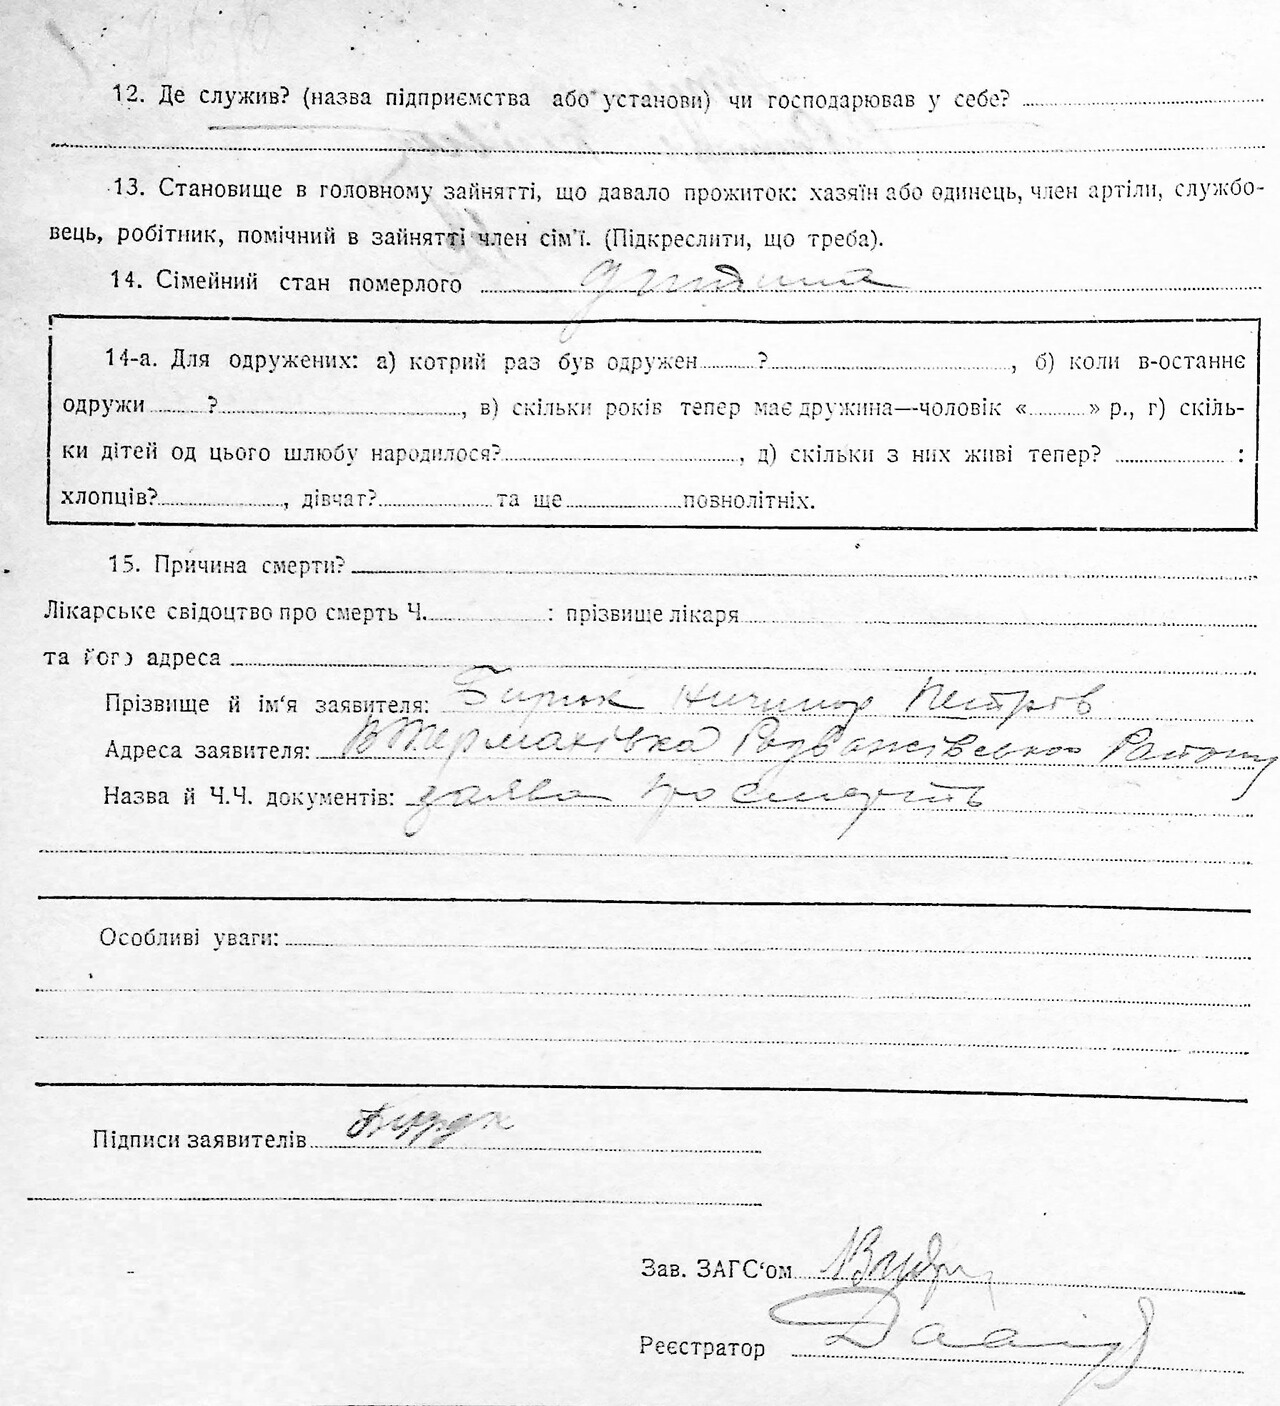 12. Де служив? (назва підприємства або установи) чи господарював у себе?
13. Становище в головному зайнятті, що давало прожиток: хазяїн або одинець, член артіли, службо-
вець, робітник, помічний в зайнятті член сім'ї. (Підкреслити, що треба).
14. Сімейний стан померлого дитина
14-а. Для одружених: а) котрий раз був одружен ? , б) коли в-останнє
одружи ? , в) скільки років тепер має дружина—чоловік « » р., г) скіль-
ки дітей од цього шлюбу народилося? , д) скільки з них живі тепер? :
хлопців? , дівчат? та ще повнолітніх.
15. Причина смерти?
Лікарське свідоцтво про смерть Ч. : прізвище лікаря
та його адреса
Прізвище й ім'я заявителя: Бирюк Ничипор Петров
Адреса заявителя: Термахівка Розважівського Району
Назва й Ч.Ч. документів: заява про смерть
Особливі уваги:
Підписи заявителів
Зав. ЗАГС'ом
Реєстратор